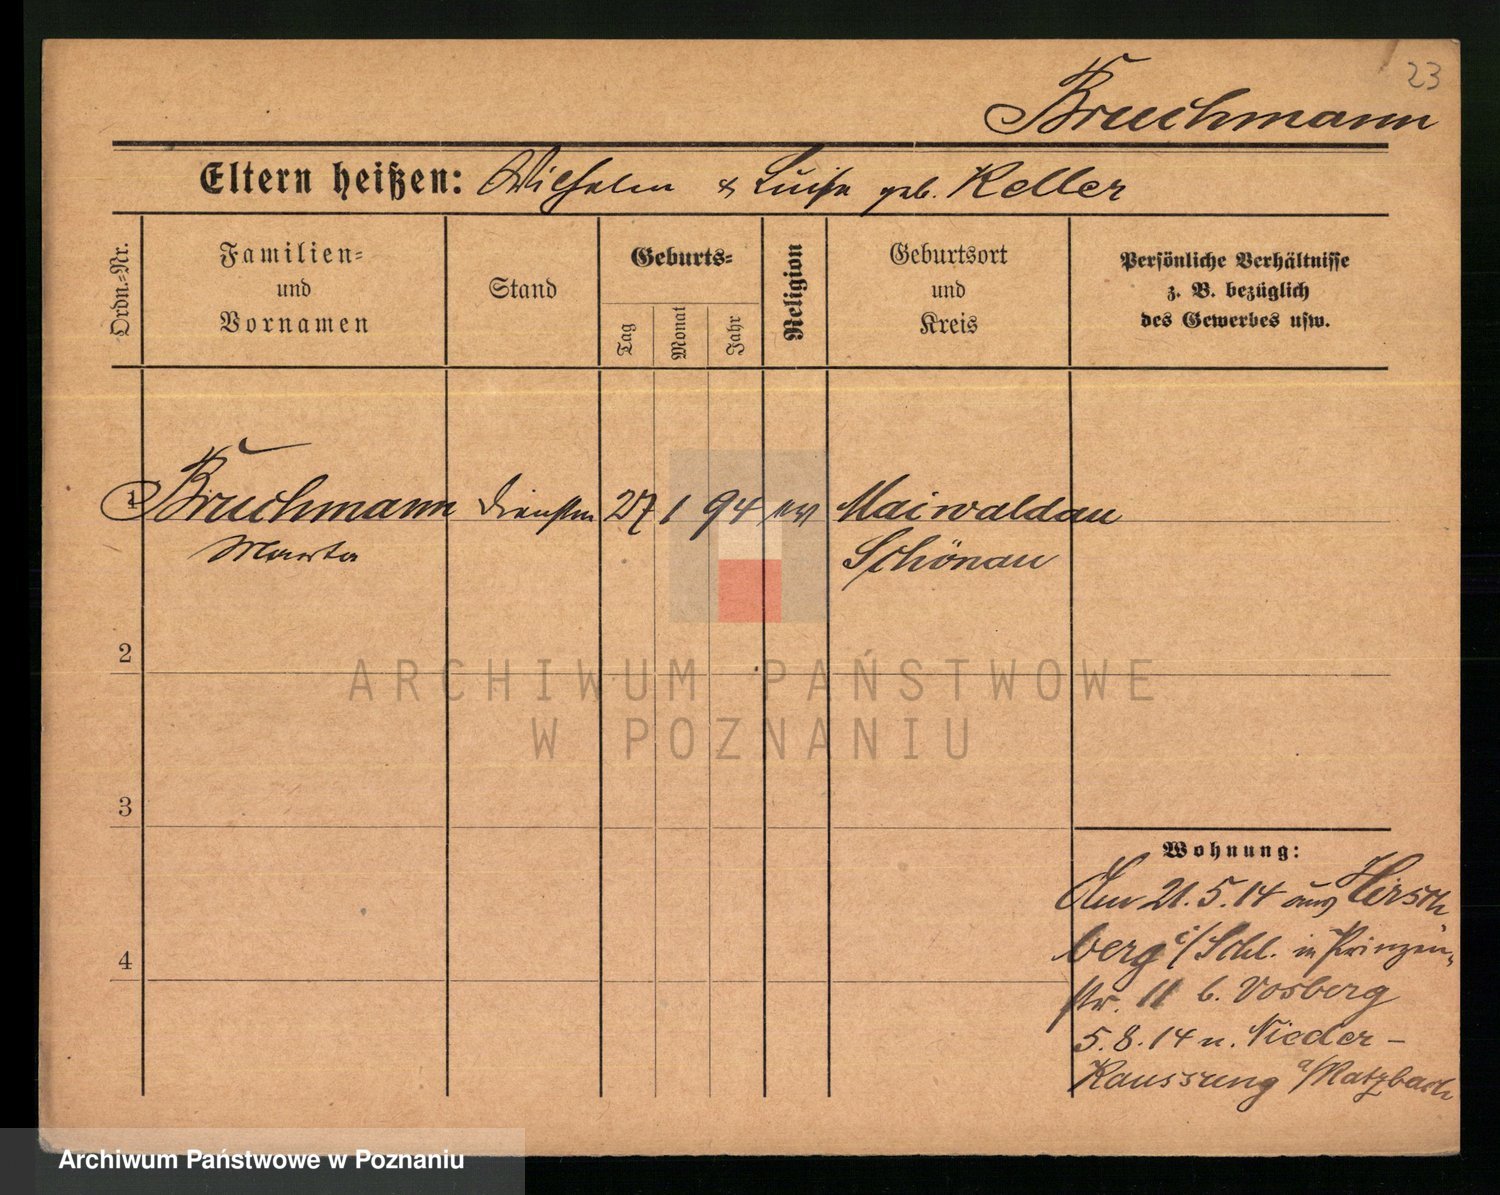 23
Bruchmann
Eltern heißen: Wilhelm & Luise geb. Keller
Ordn.-Nr.
Familien-
und
Vornamen
Stand
Geburts-
Tag
Monat
Jahr
Religion
Geburtsort
und
Kreis
Persönliche Verhältnisse
z. B. bezüglich
des Gewerbes usw.
1 Bruchmann Dienstm 27 1 94 ev Maiwaldau
Marta Schönau
2
ARCHIWUM PAŃSTWOWE
W POZNANIU
3
Wohnung:
Am 21.5.14 aus Hirsch
berg i/Schl. in Prinzen-
str. 11 b. Vosberg
4
5.8.14 n. Nieder-
Kauffung a/Katzbach
Archiwum Państwowe w Poznaniu